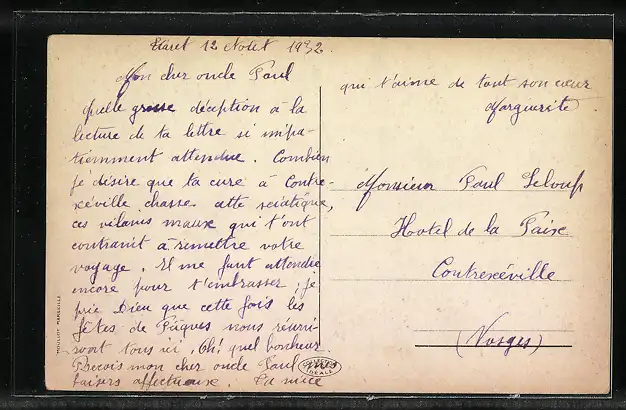 12 Août 1932
Mon cher oncle Paul
quelle grosse déception à la
lecture de ta lettre si impa-
tiemment attendue. Combien
je désire que ta cure à Contre-
xéville chasse cette sciatique,
ces vilains maux qui t'ont
contraint à remettre votre
voyage. Il me faut attendre
encore pour t'embrasser; je
prie Dieu que cette fois les
fêtes de Pâques nous réuni-
ront tous ici. Oh! quel bonheur
Reçois mon cher oncle Paul
baisers affectueux. Ta nièce
qui t'aime de tout son cœur
Marguerite
Monsieur Paul Leloup
Hotel de la Paix
Contrexéville
(Vosges)
MOULLOT MARSEILLE